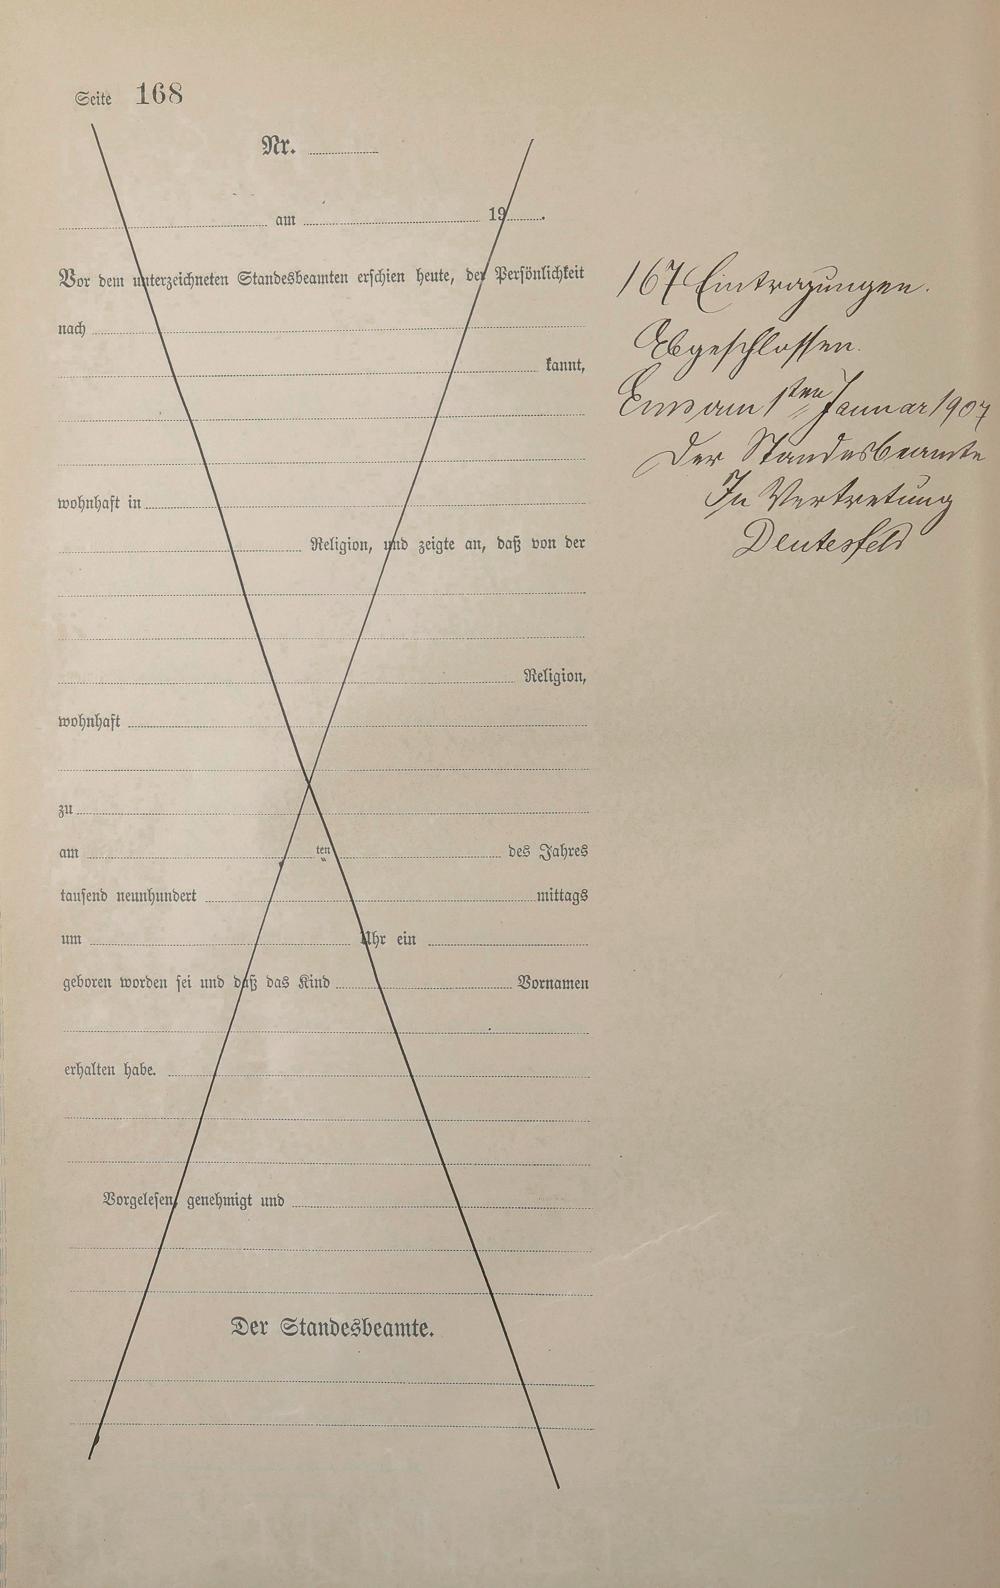 Seite 168
Nr.
am 19 .
Vor dem unterzeichneten Standesbeamten erschien heute, der Persönlichkeit
nach
kannt,
wohnhaft in
Religion, und zeigte an, daß von der
Religion,
wohnhaft
zu
am ten des Jahres
tausend neunhundert mittags
um Uhr ein
geboren worden sei und daß das Kind Vornamen
erhalten habe.
Vorgelesen, genehmigt und
Der Standesbeamte.
167 Eintragungen.
Abgeschlossen.
Ems am 1ten Januar 1907
Der Standesbeamte
In Vertretung
Deutesfeld